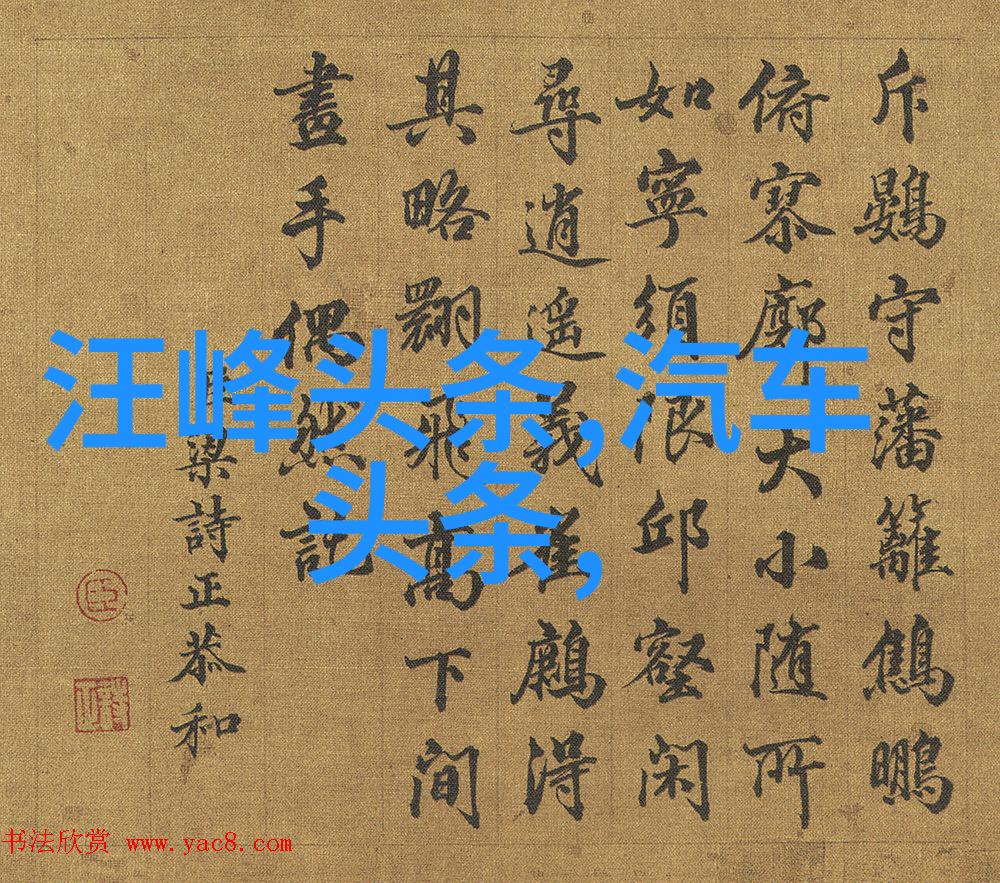 斥鷃守藩籬鷦鵬
俯寥廓大小随所
如寧須限邱壑閑
尋逍遥義得
其略翾飛高下間
畫手偶然託
臣梁詩正恭和
臣
汪峰头条,汽车
头条,
书法欣赏 www.yac8.com